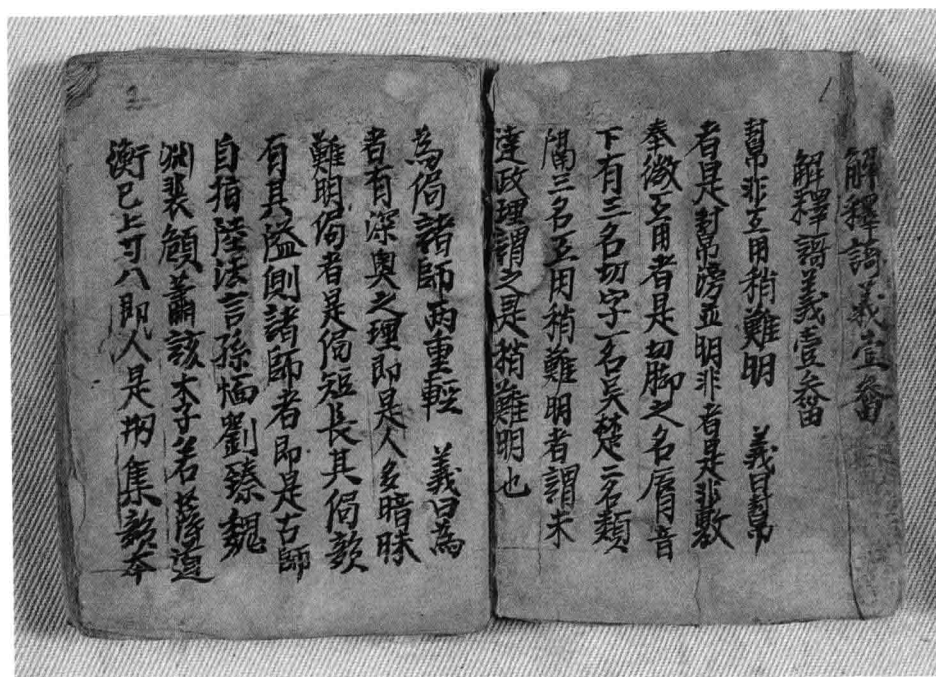 解釋謌義壹畨
解釋謌義壹畨
幫非互用稍難明 義曰幫
者是封帛滂並明非者是非敷
奉微互用者是切脚之名脣音
下有三名切字一名吴楚二名類
隔三名互用稍難明者謂未
達政理謂之是稍難明也
為侷諸師兩重輕 義曰為
者有深奥之理即是人多暗昧
難明侷者是侷短長其侷欵
有其溢則諸師者即是古師
自指陸法言孫愐劉臻魏
渊裴頠蕭該木子若薛道
衡已上 八即人是用集欵本
2